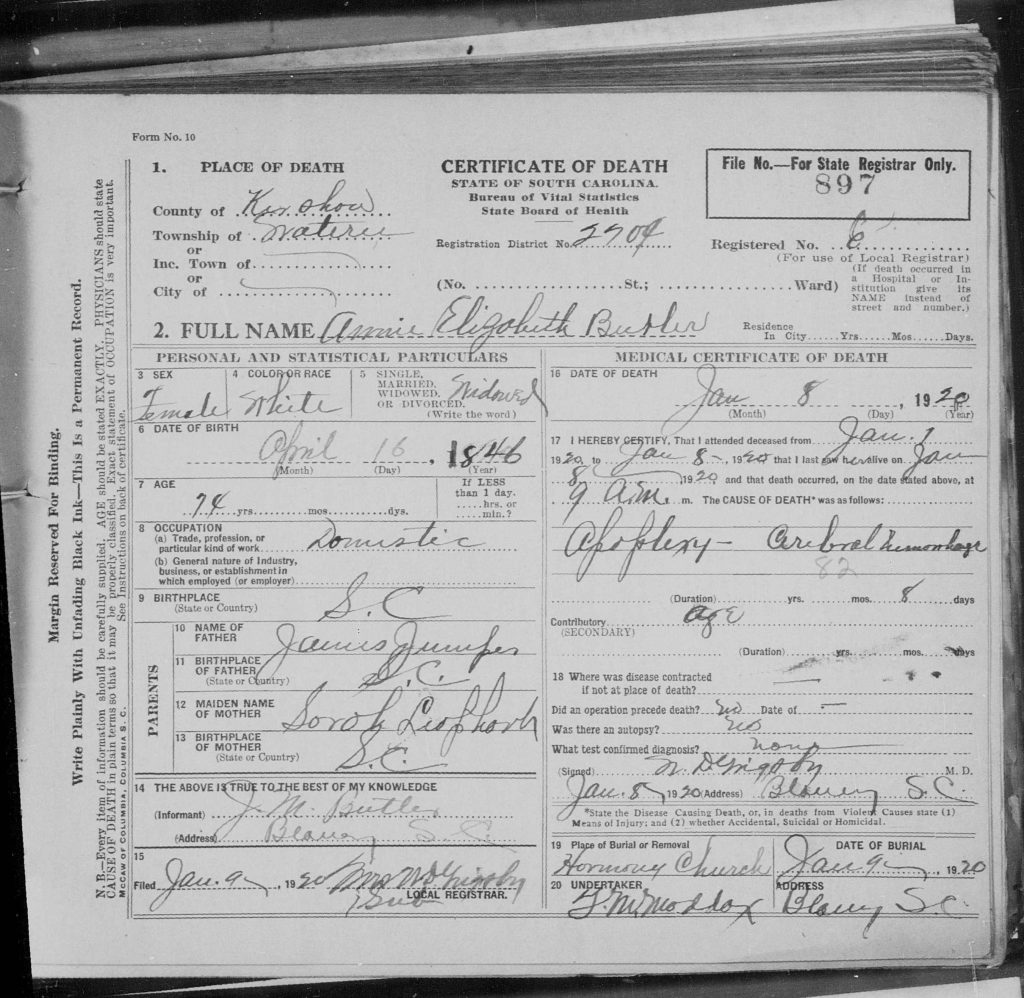 Form No. 10
1. PLACE OF DEATH
County of Kershow
Township of Wateree
or
Inc. Town of
or
City of
CERTIFICATE OF DEATH
STATE OF SOUTH CAROLINA.
Bureau of Vital Statistics
State Board of Health
Registration District No. 2704
(No. St.; Ward)
File No.—For State Registrar Only.
897
Registered No. 6
(For use of Local Registrar)
(If death occurred in
a Hospital or In-
stitution give its
NAME instead of
street and number.)
2. FULL NAME Annie Elizabeth Butler
Residence
In City Yrs. Mos. Days.
PERSONAL AND STATISTICAL PARTICULARS
3 SEX
Female
4 COLOR OR RACE
White
5 SINGLE,
MARRIED,
WIDOWED,
OR DIVORCED.
(Write the word)
Widowed
6 DATE OF BIRTH
April 16, 1846
(Month) (Day) (Year)
7 AGE
74 yrs. mos. dys.
If LESS
than 1 day.
hrs. or
min.?
8 OCCUPATION
(a) Trade, profession, or
particular kind of work Domestic
(b) General nature of Industry,
business, or establishment in
which employed (or employer)
9 BIRTHPLACE
(State or Country) S. C
PARENTS
10 NAME OF
FATHER James Jumper
11 BIRTHPLACE
OF FATHER
(State or Country) S. C.
12 MAIDEN NAME
OF MOTHER Sarah
13 BIRTHPLACE
OF MOTHER
(State or Country) S. C.
14 THE ABOVE IS TRUE TO THE BEST OF MY KNOWLEDGE
(Informant) J. M. Butler
(Address) Blaney S. C.
15
Filed Jan. 9 1920 Mrs W D Grigsby
Sub LOCAL REGISTRAR.
MEDICAL CERTIFICATE OF DEATH
16 DATE OF DEATH
Jan 8, 1920
(Month) (Day) (Year)
17 I HEREBY CERTIFY, That I attended deceased from Jan. 1
1920 to Jan 8 1920 that I last saw her alive on Jan
8 1920 and that death occurred, on the date stated above, at
9 A.M. m. The CAUSE OF DEATH* was as follows:
Apoplexy — Cerebral hemorrhage
82
(Duration) yrs. mos. 8 days
Contributory Age
(SECONDARY)
(Duration) yrs. mos. days
18 Where was disease contracted
if not at place of death?
Did an operation precede death? No Date of —
Was there an autopsy? No
What test confirmed diagnosis? none
(Signed) W D Grigsby M. D.
Jan. 8 1920 (Address) Blaney S. C.
*State the Disease Causing Death, or, in deaths from Violent Causes state (1)
Means of Injury; and (2) whether Accidental, Suicidal or Homicidal.
19 Place of Burial or Removal
Harmony Church
DATE OF BURIAL
Jan. 9 1920
20 UNDERTAKER
Maddox
ADDRESS
Blaney S. C.
Margin Reserved For Binding.
Write Plainly With Unfading Black Ink—This Is a Permanent Record.
N. B.—Every item of information should be carefully supplied. AGE should be stated EXACTLY. PHYSICIANS should state
CAUSE OF DEATH in plain terms so that it may be properly classified. Exact statement of OCCUPATION is very important.
See Instructions on back of certificate.
McCAW OF COLUMBIA, COLUMBIA S. C.